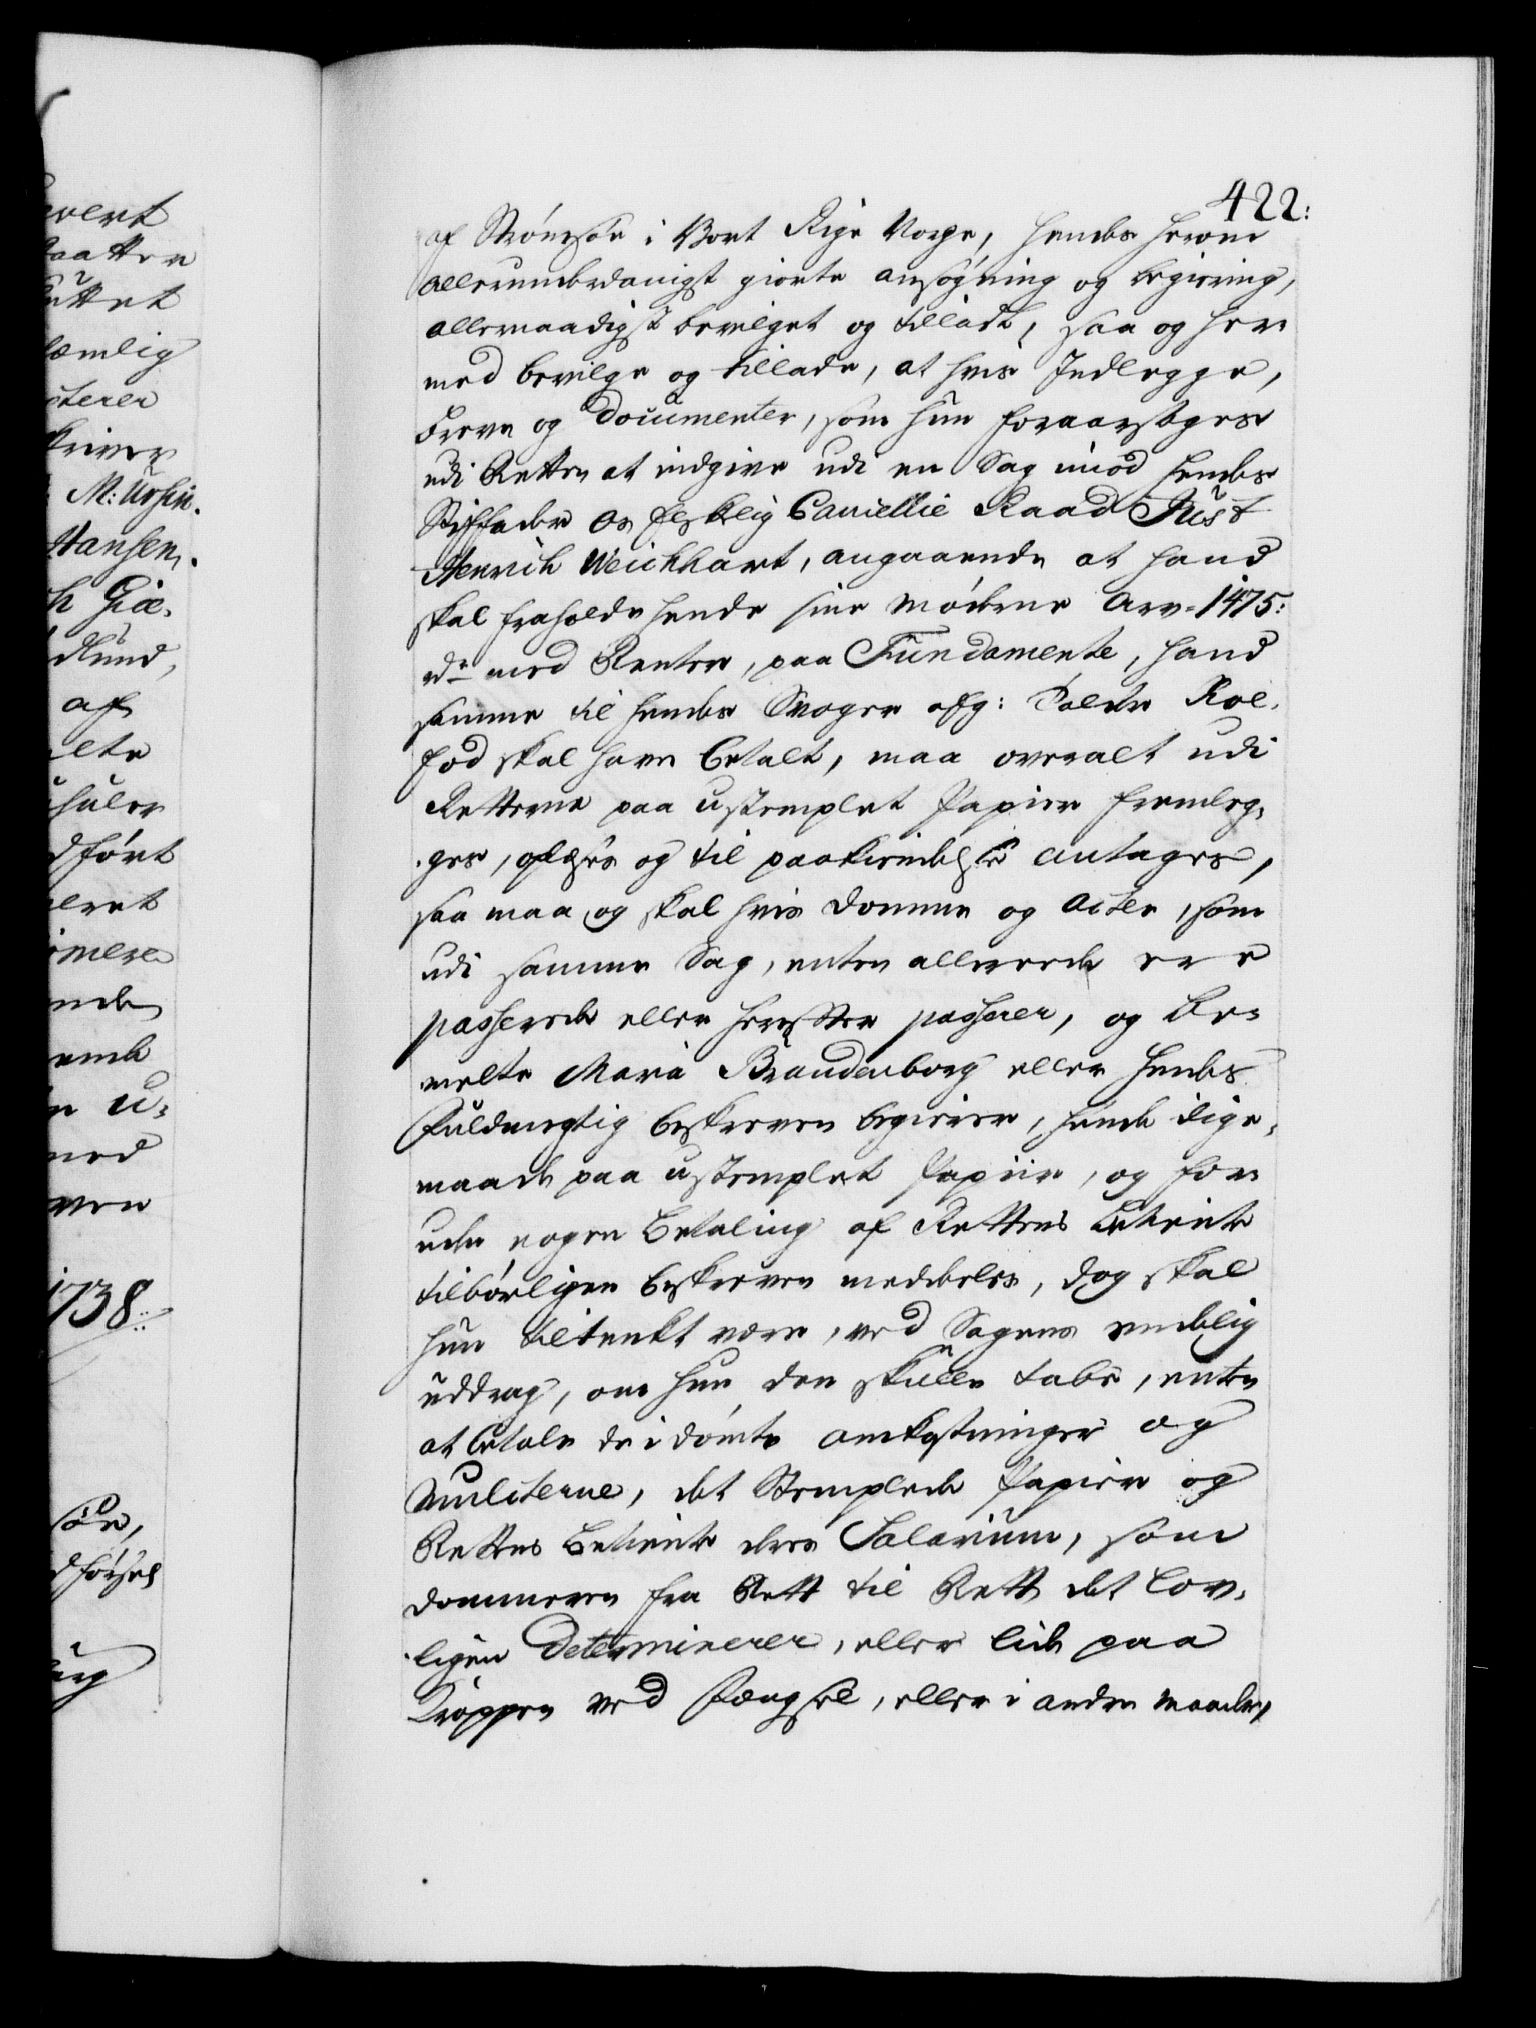 422:
af Strømsøe i Vort Rige Norge, hendes herom
allerunderdanigst giorte ansøgning og begiering,
allernaadigst bevilget og tilladt, saa og her¬
med bevilge og tillade, at hvis Indlegge,
breve og Documenter, som hun foraarsages
udi Retten at indgive udi en Sag imod hendes
Stiffader Os elskelig Cancellie Raad Just
Henrich Weichhart, angaaende at hand
skal fraholde hende sine møderne Arv 1475:
rdr med Renter, paa Fundamente, hand
samme til hendes Svoger afg: Peder Roe¬
fod skal have betalt, maa overalt udi
Retterne paa ustemplet Papiir fremleg¬
ges, oplæses og til paakiendelse antages,
saa maa og skal hvis Domme og Acter, som
udi samme Sag, enten allereede ere
passerede eller herefter passerer, og be¬
melte Maria Brandenborg eller hendes
Fuldmegtig beskreven begierer, hende lige¬
maade paa ustemplet Papiir, og for¬
uden nogen Betaling af Rettens Betiente
tilbørligen beskreven meddeles, dog skal
hun tiltenkt være, ved Sagens endelig
uddrag, om hun den skulle tabe, enten
at betale de idømte omkostninger og
Mulcterne, det Stemplede Papiir og
Rettens Betiente deres Salarium, som
Dommeren fra Rett til Rett det lov¬
ligen Determinerer, eller lide paa
Kroppen ved Fængsel, eller i andre maader,
avert
1738
M: Ursin.
Hansen,
h Giæ¬
dlund,
af